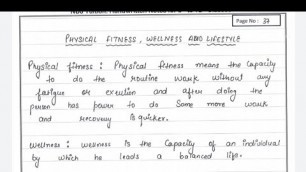 Page No : 37
PHYSICAL FITNESS, WELLNESS AND LIFESTYLE
Physical fitness : Physical fitness means the capacity
to do the routine work without any
fatigue or exertion and after doing the
person has power to do some more work
and recovery is quicker.
Wellness : Wellness is the capacity of an individual
by which he leads a balanced life.